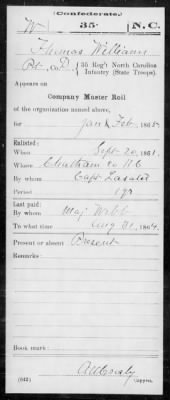 (Confederate.)
W 35 N.C.
Thomas Williams
Pvt, Co. D, 35 Reg't North Carolina
Infantry (State Troops).
Appears on
Company Muster Roll
of the organization named above,
for Jan & Feb, 1865.
Enlisted:
When Sept 20, 1861.
Where Chatham Co NC
By whom Capt Lasater
Period 1 yr
Last paid:
By whom Maj Webb
To what time Aug 31, 1864.
Present or absent Present
Remarks:
Book mark:
(642) Copyist.